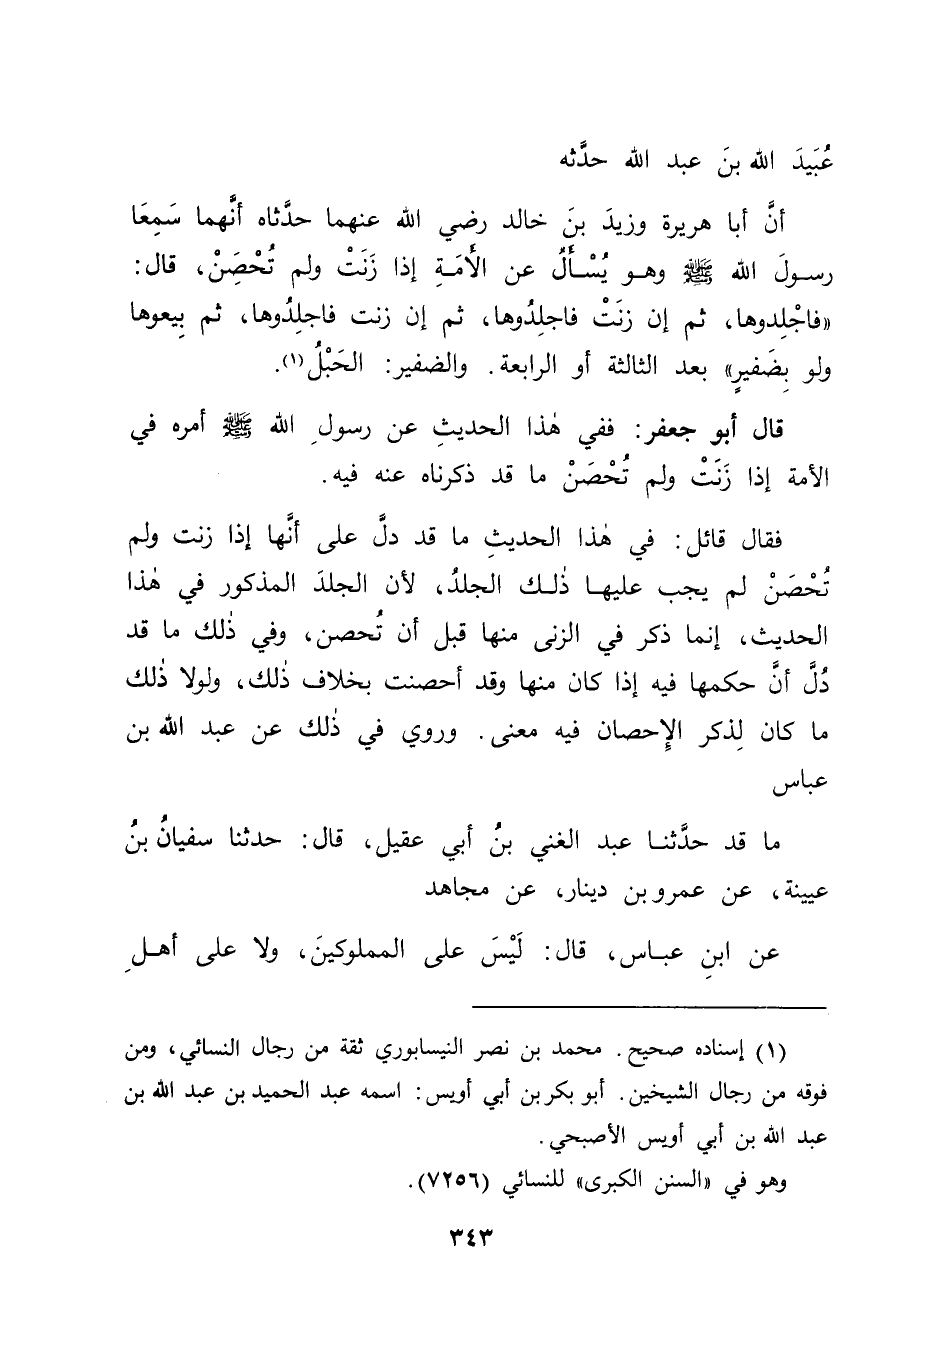 عُبَيدَ الله بنَ عبد الله حدَّثه
أنَّ أبا هريرة وزيدَ بنَ خالد رضي الله عنهما حدَّثاه أنَّهما سَمِعَا
رسولَ الله ﷺ وهو يُسْأَلُ عن الأَمَةِ إذا زَنَتْ ولم تُحْصَنْ، قال:
«فاجْلِدوها، ثم إن زنَتْ فاجلِدُوها، ثم إن زنت فاجلِدُوها، ثم بِيعوها
ولو بِضَفيرٍ» بعد الثالثة أو الرابعة. والضفير: الحَبْلُ(١).
قال أبو جعفر: ففي هٰذا الحديثِ عن رسولِ الله ﷺ أمره في
الأمة إذا زَنَتْ ولم تُحْصَنْ ما قد ذكرناه عنه فيه.
فقال قائل: في هٰذا الحديثِ ما قد دلَّ على أنَّها إذا زنت ولم
تُحْصَنْ لم يجب عليها ذٰلك الجلدُ، لأن الجلدَ المذكور في هٰذا
الحديث، إنما ذكر في الزنى منها قبل أن تُحصن، وفي ذٰلك ما قد
دُلَّ أنَّ حكمها فيه إذا كان منها وقد أحصنت بخلاف ذٰلك، ولولا ذٰلك
ما كان لِذكر الإِحصان فيه معنى. وروي في ذٰلك عن عبد الله بن
عباس
ما قد حدَّثنا عبد الغني بنُ أبي عقيل، قال: حدثنا سفيانُ بنُ
عيينة، عن عمرو بن دينار، عن مجاهد
عن ابنِ عباسٍ، قال: لَيْسَ على المملوكينَ، ولا على أهلِ
(١) إسناده صحيح. محمد بن نصر النيسابوري ثقة من رجال النسائي، ومن
فوقه من رجال الشيخين. أبو بكر بن أبي أويس: اسمه عبد الحميد بن عبد الله بن
عبد الله بن أبي أويس الأصبحي.
وهو في «السنن الكبرى» للنسائي (٧٢٥٦).
٣٤٣